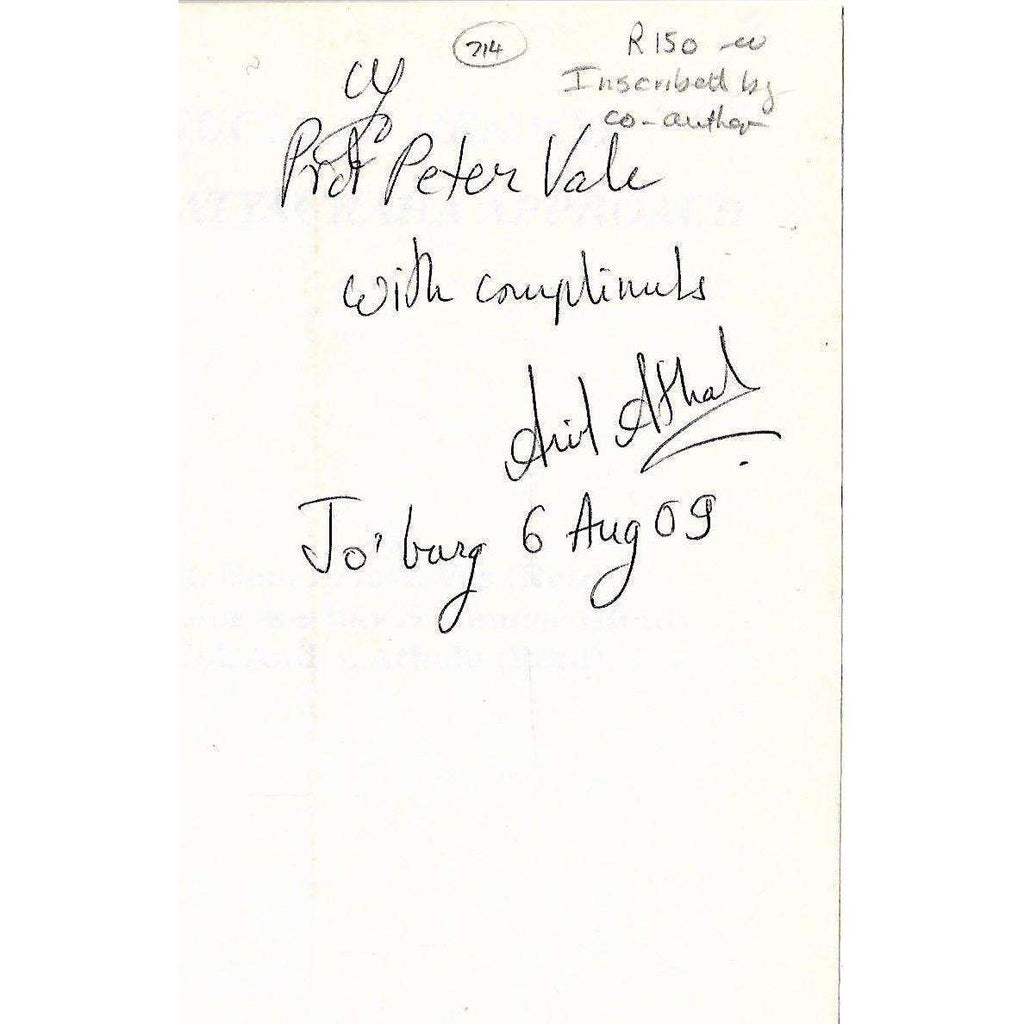 714
R150-00
Inscribed by
co-author
To
Prof Peter Vale
with compliments
Anil Athal
Jo'burg 6 Aug 09